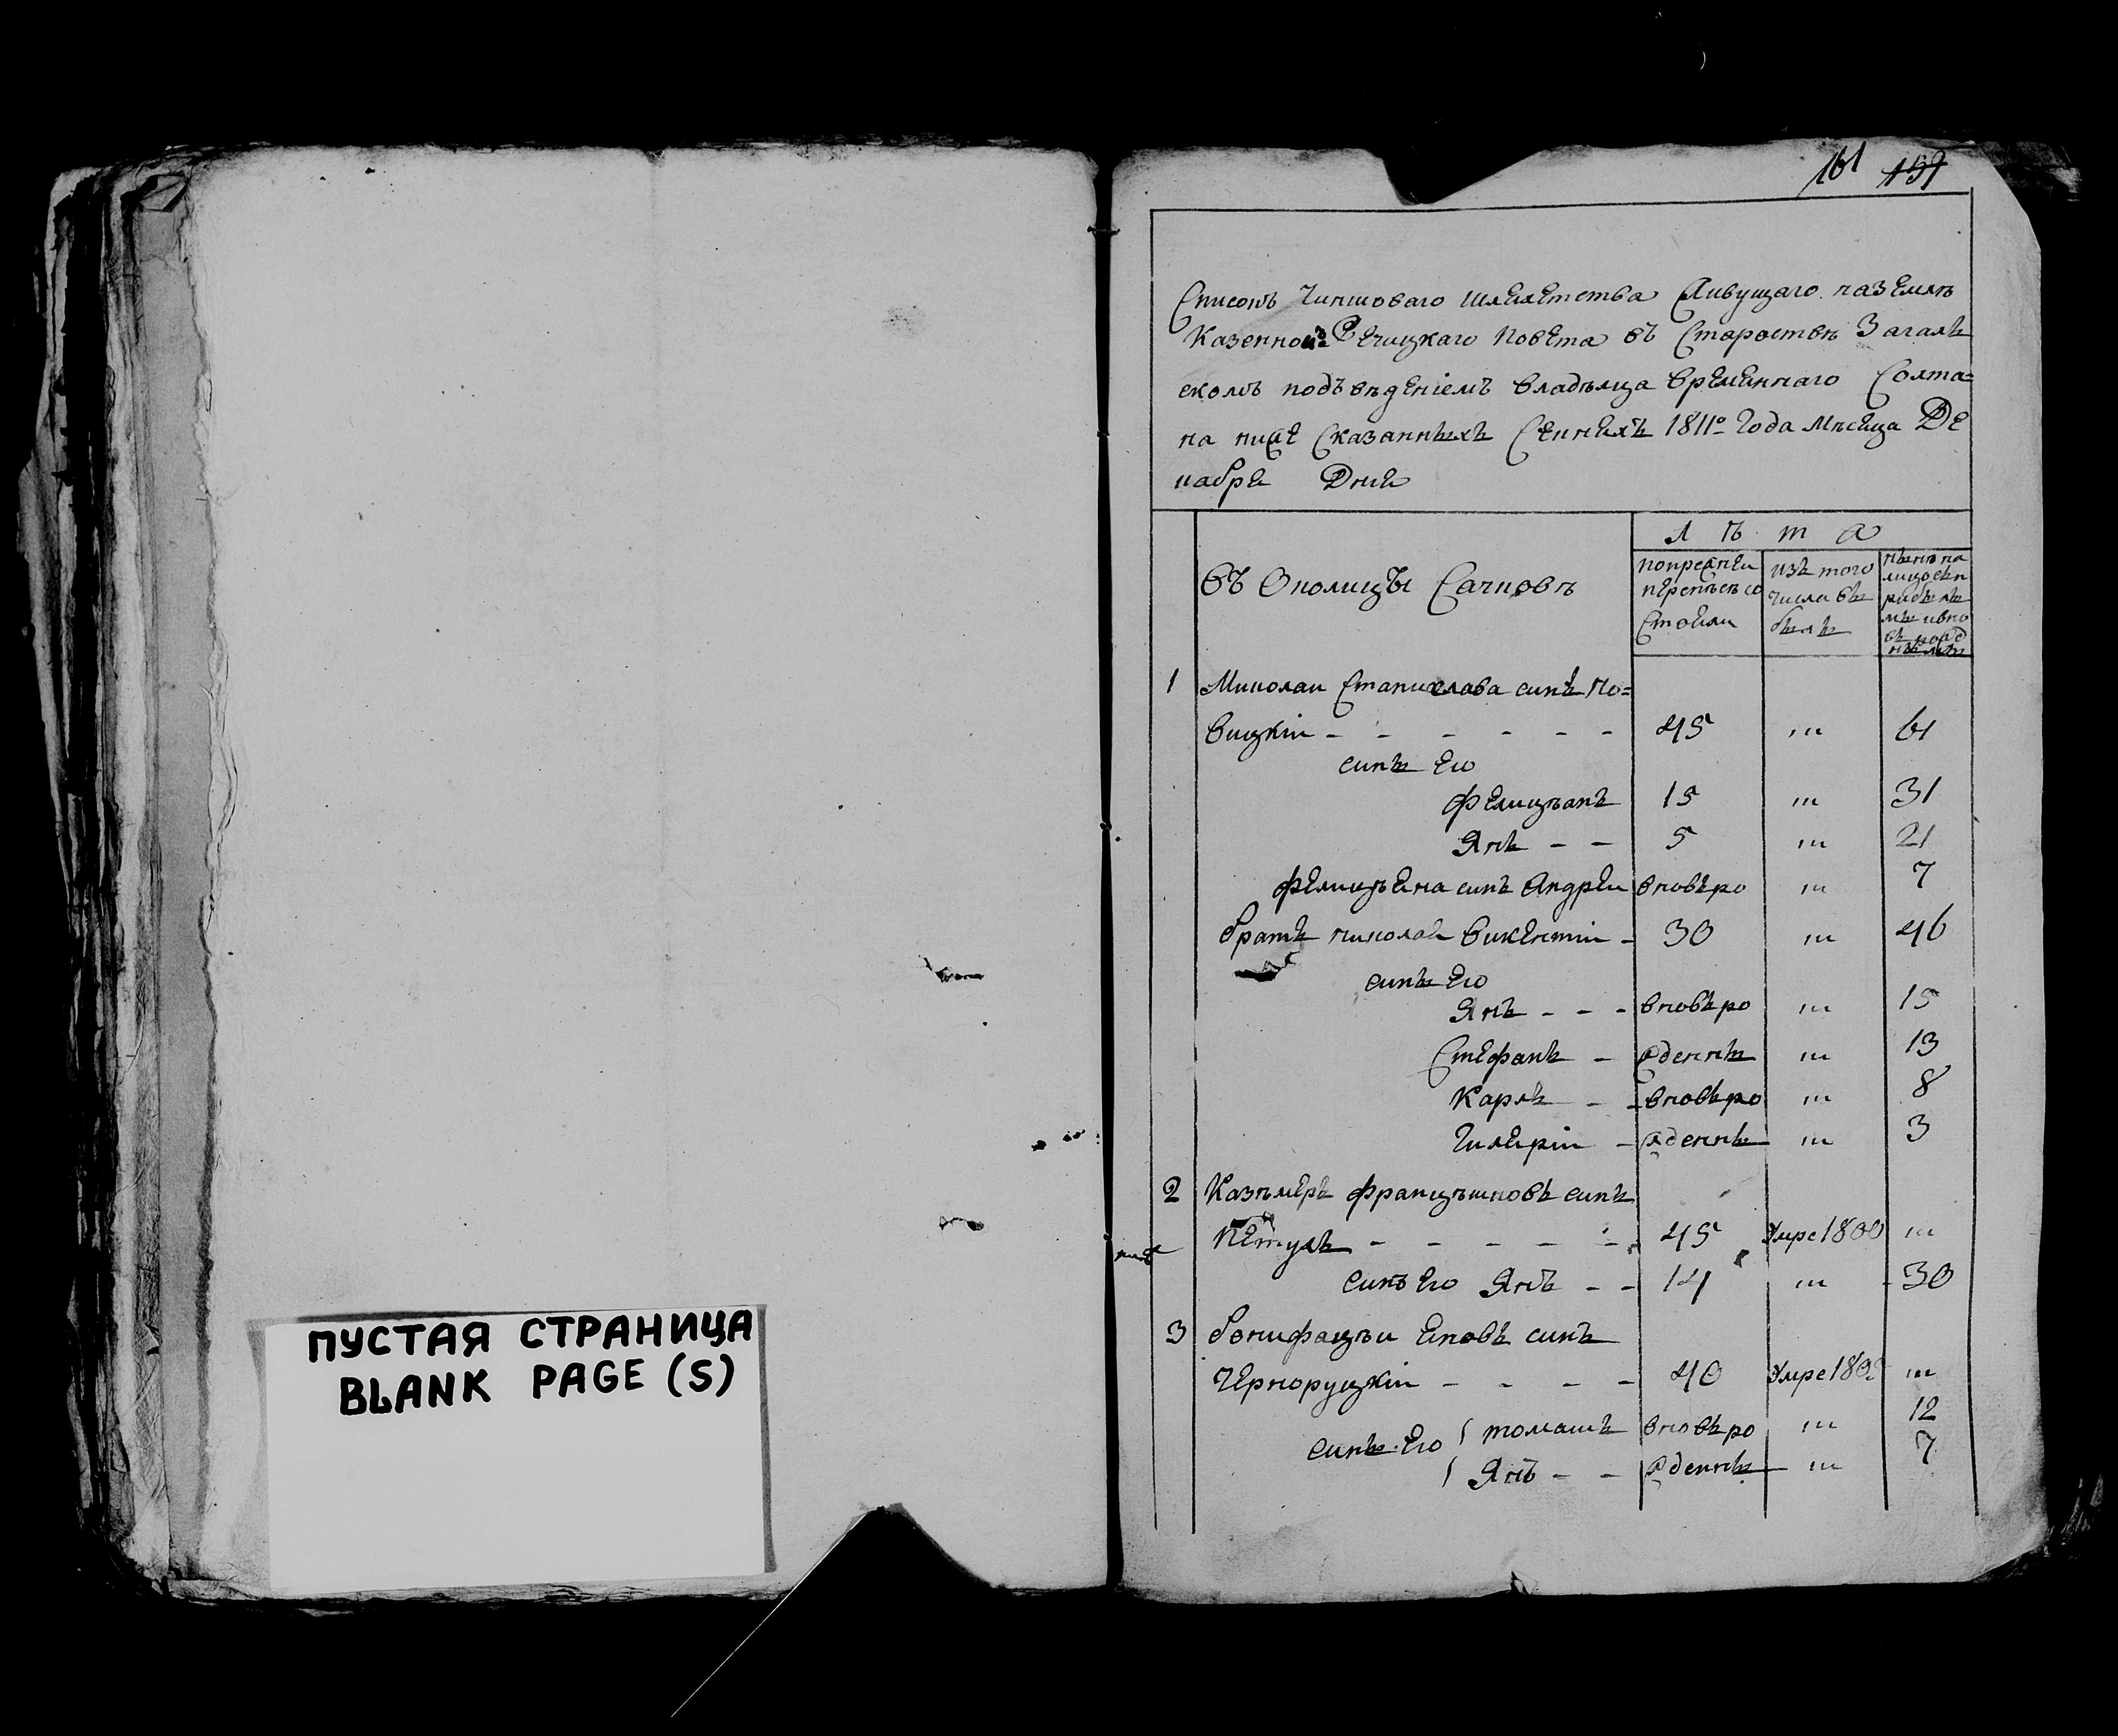 ПУСТАЯ СТРАНИЦА
BLANK PAGE (S)
161 157
Списокъ Чиншоваго шляхетства Живущаго наземлѣ
Казенной Речицкаго Повѣта въ Староствѣ Загаль
скомъ подъ вѣденіемъ владѣлца временнаго Солта=
на ниже Сказанныхъ 1811го Года Мѣсяца Де
кабря Дня
Лѣта
въ Околицы Сачковѣ
попрежнеи
переписѣ со
стояли
изъ того
числа вы
были
нынѣ на
лицо съ п
1 Миколаи Станислава синъ Но=
вицкіи - - - - - - 45 ,,, 61
сины Его
Фелицыанъ 15 ,,, 31
Янъ - - 5 ,,, 21
Фелицыяна синъ Андреи вновъро ,,, 7
братъ николая Викентіи - 30 ,,, 46
сины Его
Янъ - - - вновъро ,,, 15
Стефанъ - жденны ,,, 13
Карлъ - - вновъро ,,, 8
Гилярiи - жденны ,,, 3
2 Казымеръ Францышковъ синъ
Петухъ - - - - - 45 Умре 1800 ,,,
синъ Его Янъ - - 14 ,,, 30
3 бонифацыи Яновъ синъ
Чернoруцкіи - - - - 40 Умре ,,,
сины Его томашъ вновъро ,,, 12
Янъ - - жденны ,,, 7